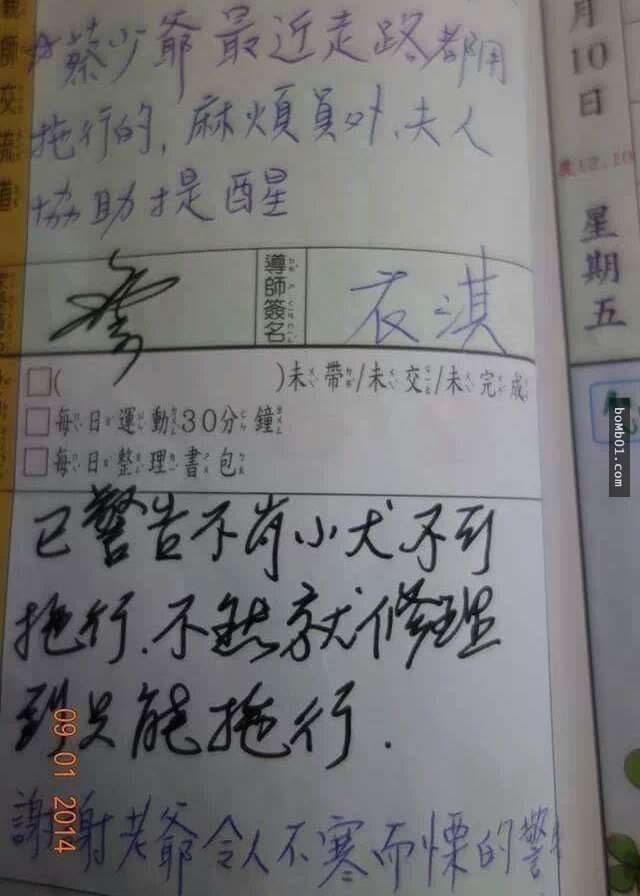 親師交流道
蔡少爺最近走路都用
拖行的,麻煩員外、夫人
協助提醒
導師簽名
衣淇
□( )未帶/未交/未完成
□每日運動30分鐘
□每日整理書包
已警告不肖小犬不可
拖行.不然就修理
到只能拖行.
謝謝老爺令人不寒而慄的警
09 01 2014
月10日
星期五
bomb01.com